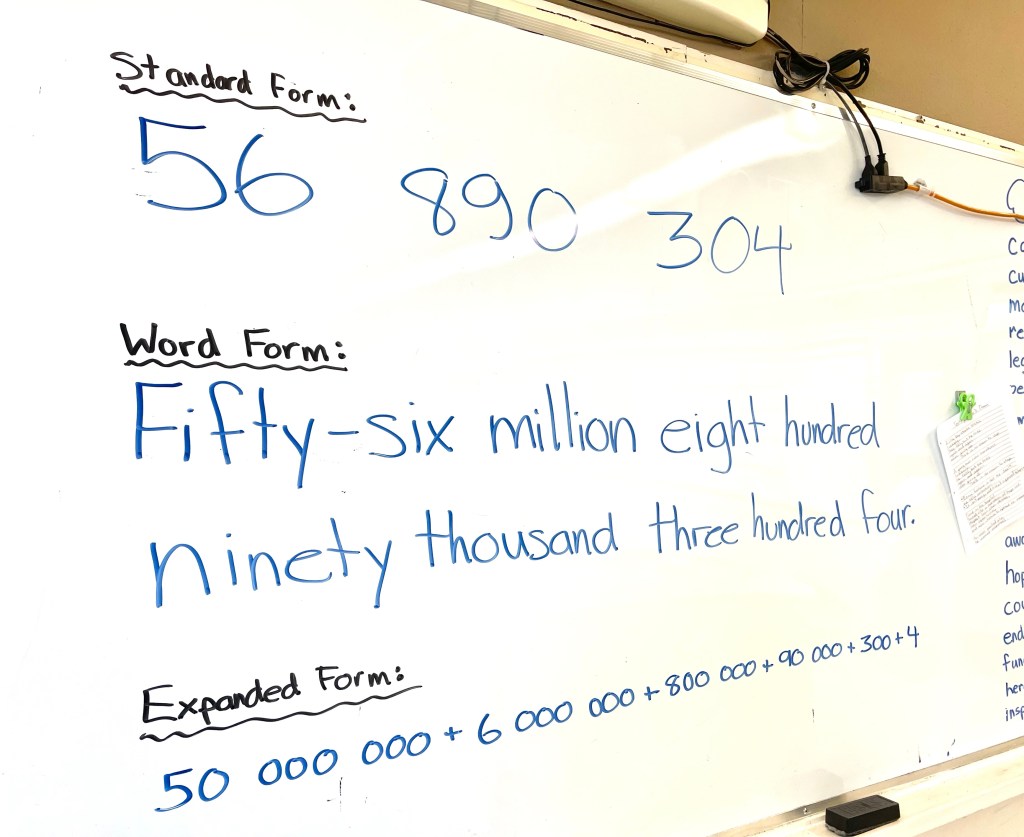 Standard Form:
56 890 304
Word Form:
Fifty-six million eight hundred
ninety thousand three hundred four.
Expanded Form:
50 000 000 + 6 000 000 + 800 000 + 90 000 + 300 + 4